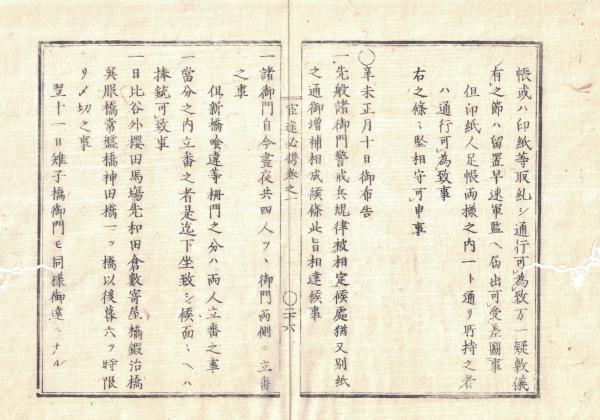 帳或ハ印紙等取糺シ通行可為致万一疑敷儀
有之節ハ留置早速軍監ヘ届出可受差圖事
但印紙人足帳両様之内一ト通リ所持之者
ハ通行可為致事
右之條々堅相守可申事
〇辛未正月十日御布告
一先般諸御門警戒兵規律被相定候處猶又別紙
之通御増補相成候條此旨相達候事
宦途必携巻之一
〇二十六
一諸御門自今晝夜共四人ツヽ御門両側ニ立番
之事
但新橋喰違等柵門之分ハ両人立番之事
一當分之内立番之者是迄下坐致シ候面々ヘハ
捧銃可致事
一日比谷外櫻田馬場先和田倉數寄屋橋鍜治橋
呉服橋常盤橋神田橋一ツ橋以後暮六ツ時限
リ〆切之事
翌十一日雉子橋御門モ同様御達ニナル